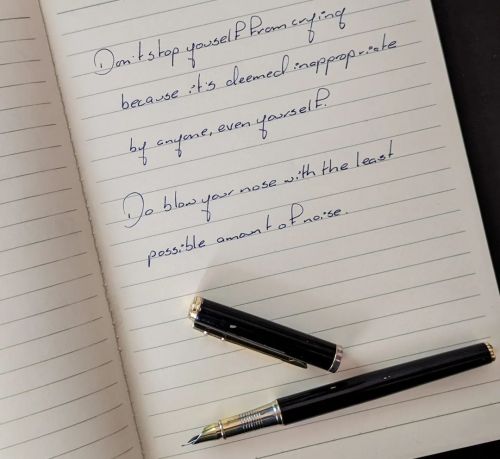 Don't stop youself from crying
because it's deemed inappropriate
by anyone, even yourself.
Do blow your nose with the least
possible amount of noise.